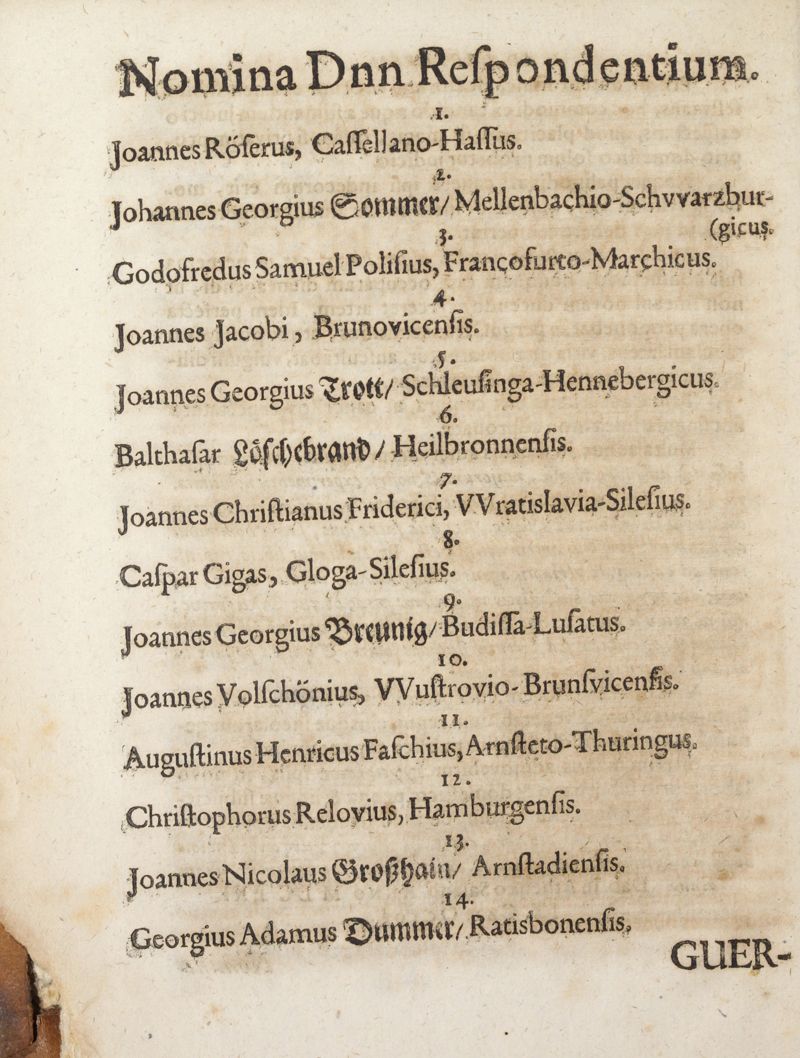 Nomina Dnn Reſpondentium.
1.
Joannes Röſerus, Caſſellano-Haſſus.
2.
Johannes Georgius Sommer/ Mellenbachio-Schvvarzbur-
(gicus.
3.
Godofredus Samuel Poliſius, Francofurto-Marchicus.
4.
Joannes Jacobi, Brunovicenſis.
5.
Joannes Georgius Trott/ Schleuſinga-Hennebergicus.
6.
Balthaſar Löſchebrand/ Heilbronnenſis.
7.
Joannes Chriſtianus Friderici, VVratislavia-Sileſius.
8.
Caſpar Gigas, Gloga-Sileſius.
9.
Joannes Georgius Breunig/ Budiſſa-Luſatus.
10.
Joannes Volſchönius, VVuſtrovio-Brunſvicenſis.
11.
Auguſtinus Henricus Faſchius, Arnſteto-Thuringus.
12.
Chriſtophorus Relovius, Hamburgenſis.
13.
Joannes Nicolaus Großhain/ Arnſtadienſis.
14.
Georgius Adamus Dummer/ Ratisbonenſis.
GUER-